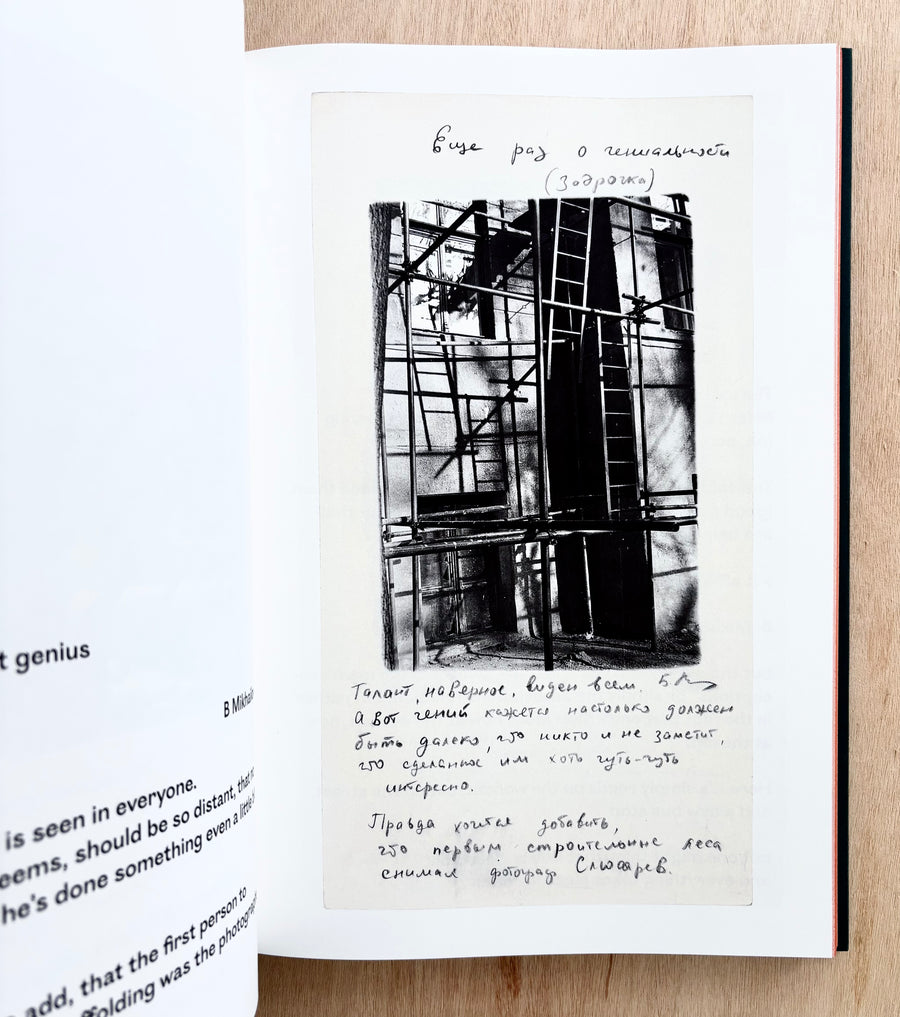 t genius
B Mikhail
is seen in everyone.
eems, should be so distant, that no
he's done something even a little
add, that the first person to
ffolding was the photograph
Еще раз о гениальности
(Задрочка)
Талант, наверное, виден всем.
А вот гений кажется настолько должен
быть далеко, что никто и не заметит,
что сделанное им хоть чуть-чуть
интересно.
Правда хочется добавить,
что первым строительные леса
снимал фотограф Слюсарев.